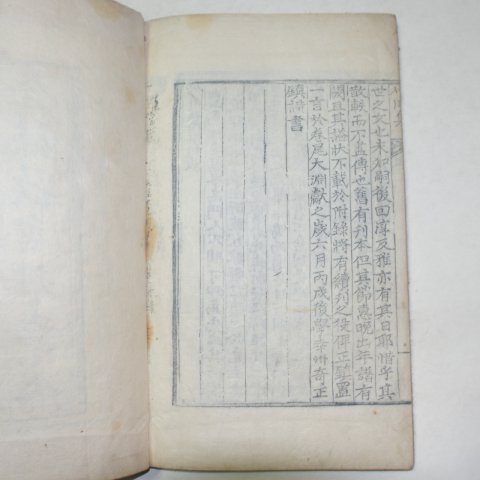 世之文也未知嗣後回淳反雅亦有其日耶惜乎其
散軼而不盡傳也舊有刊本但其節惠晚出年譜有
闕且其諡狀不載於附錄將有續刊之役俾正鎭置
一言於卷尾大淵獻之歲六月丙戌後學幸州奇正
鎭謹書